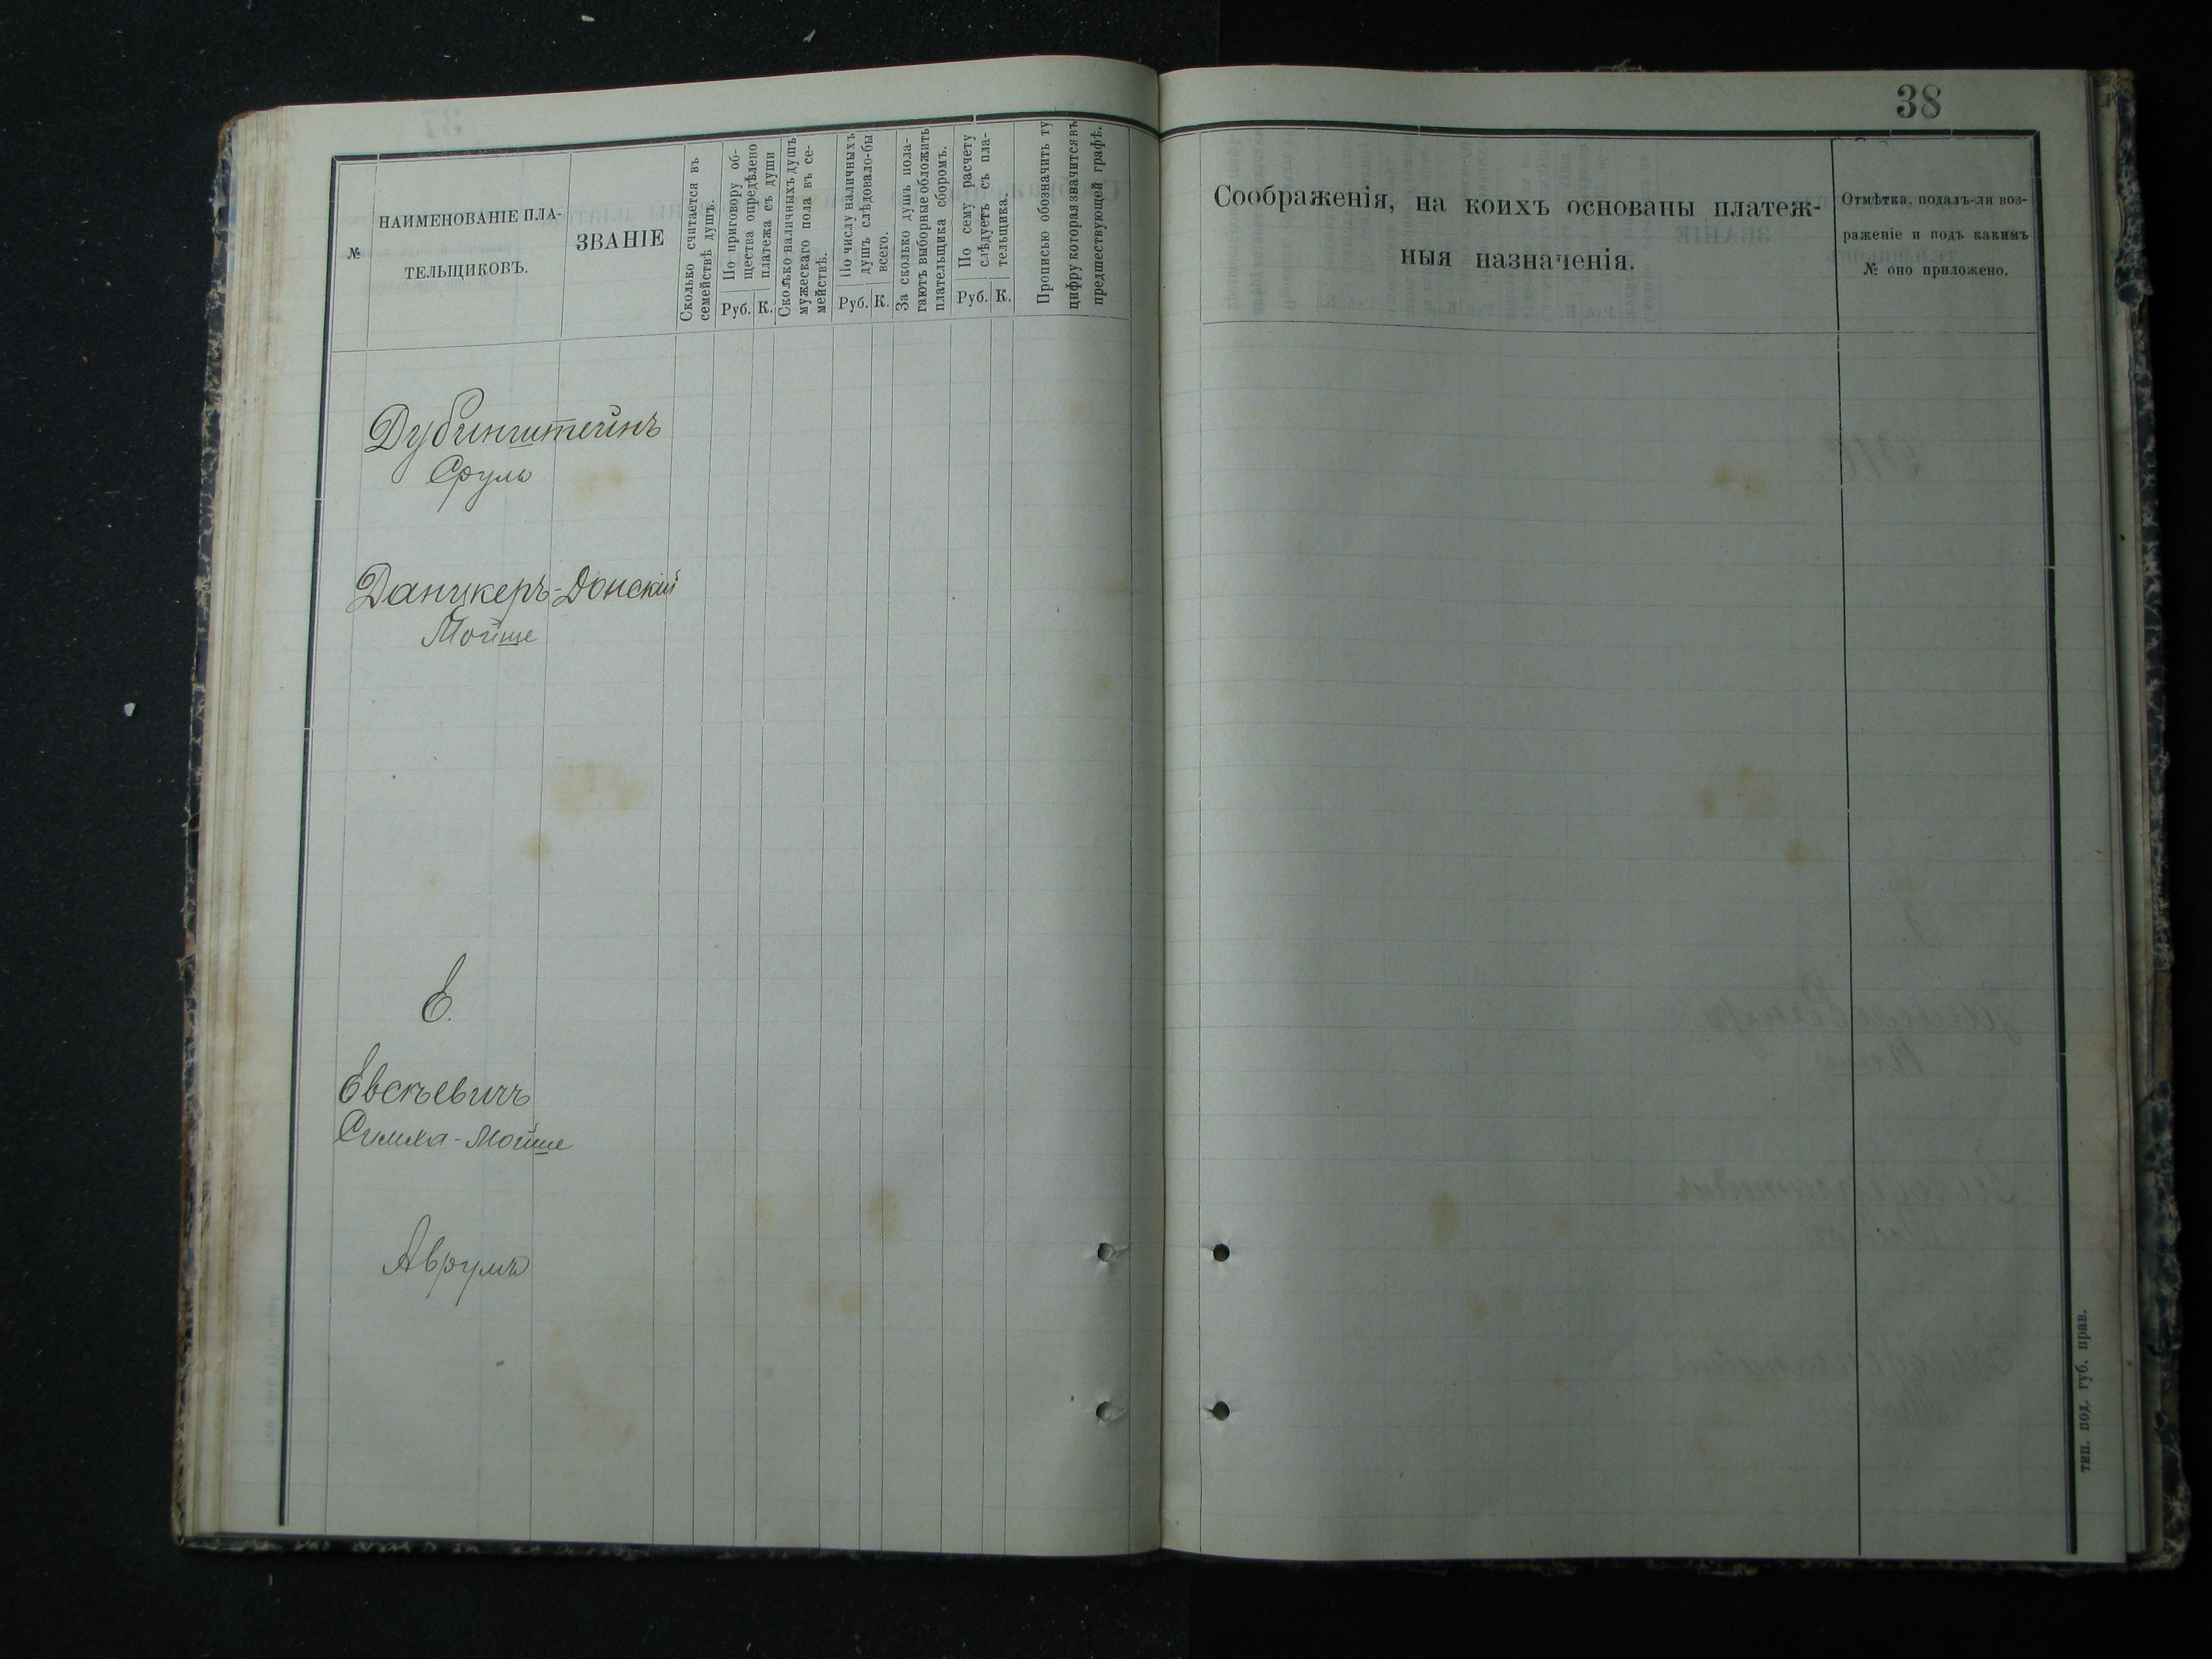 38
№
НАИМЕНОВАНІЕ ПЛА-
ТЕЛЬЩИКОВЪ.
ЗВАНІЕ
Сколько считается въ
семействѣ душъ.
По приговору об-
щества опредѣлено
платежа съ души
Руб. К.
Сколько наличныхъ душъ
мужескаго пола въ се-
мействѣ.
По числу наличныхъ
душъ слѣдовало-бы
всего.
Руб. К.
За сколько душъ пола-
гаютъ выборные обложить
плательщика сборомъ.
По сему расчету
слѣдуетъ съ пла-
тельщика.
Руб. К.
Прописью обозначить ту
цифру которая значится въ
предшествующей графѣ.
Соображенія, на коихъ основаны платеж-
ныя назначенія.
Отмѣтка, подалъ-ли воз-
раженіе и подъ какимъ
№ оно приложено.
Дубинштейнъ
Сруль
Данцкеръ-Донскій
Мойше
Е.
Евсѣевичъ
Симха-Мойше
Аврумъ
тип. под. губ. прав.